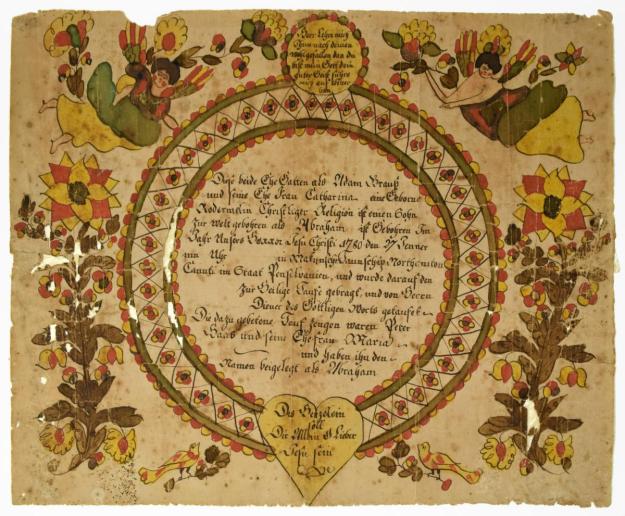 Herr Lehre mich
Thun nach deinem
wohlgefallen den du
bist mein Gott dein
guter Geist führe
mich auf
Diese beide Ehe Gatten als Adam Brauß
und seine Ehe Frau Catharina eine Geborne
Rodermelin Christliger Religion ist einen Sohn
Zur Welt gebohren als Abraham ist Gebohren Im
Jahr Unsers Jesu Christi 1780 den 27 Jenner
um Uhr in Taunschip Northemton
Caunti im Staat Penselvanien, und wurde darauf den
Zur Heilige Taufe gebragt, und von Deren
Diener des Göttligen Worts getaufet
Die dazu gebetone Tauf zeugen waren Peter
Haas und seine Ehe frau Maria
und haben ihn den
Namen beigelegt als Abraham
Des Hertzelein
soll
Die Allein
Jesu sein